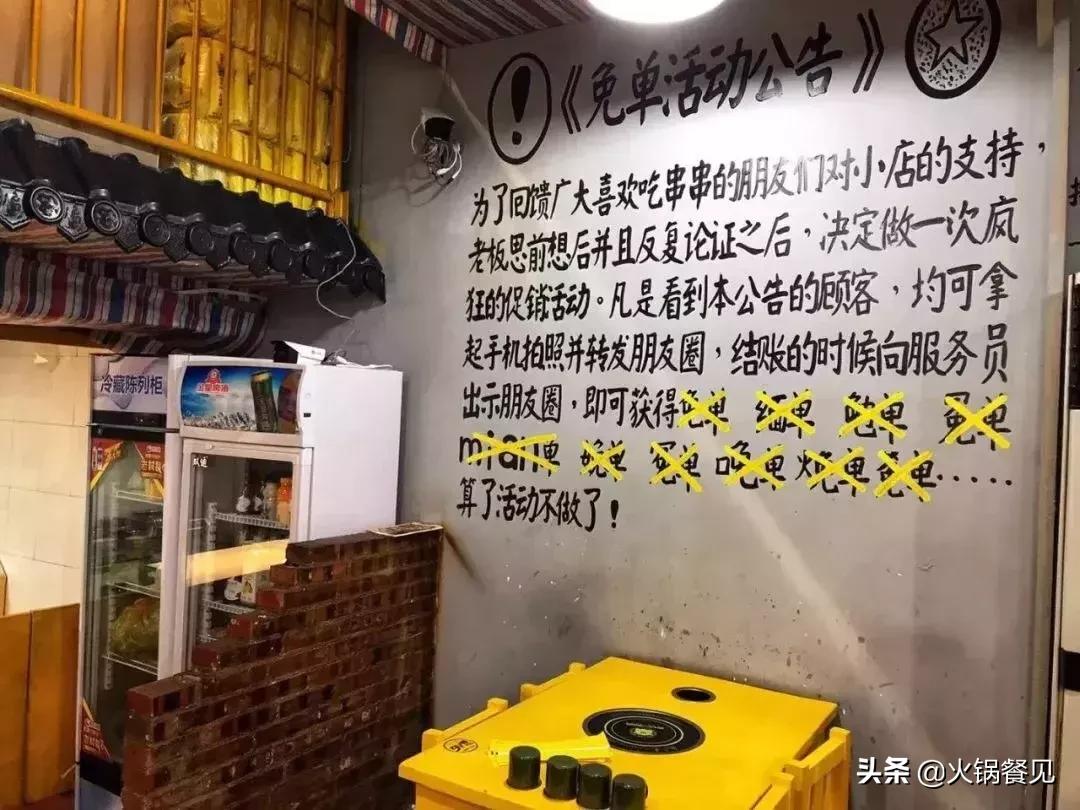 《免单活动公告》
为了回馈广大喜欢吃串串的朋友们对小店的支持，
老板思前想后并且反复论证之后，决定做一次疯
狂的促销活动。凡是看到本公告的顾客，均可拿
起手机拍照并转发朋友圈，结账的时候向服务员
出示朋友圈，即可获得
mian单
算了活动不做了！
冷藏陈列柜
头条 @火锅餐见